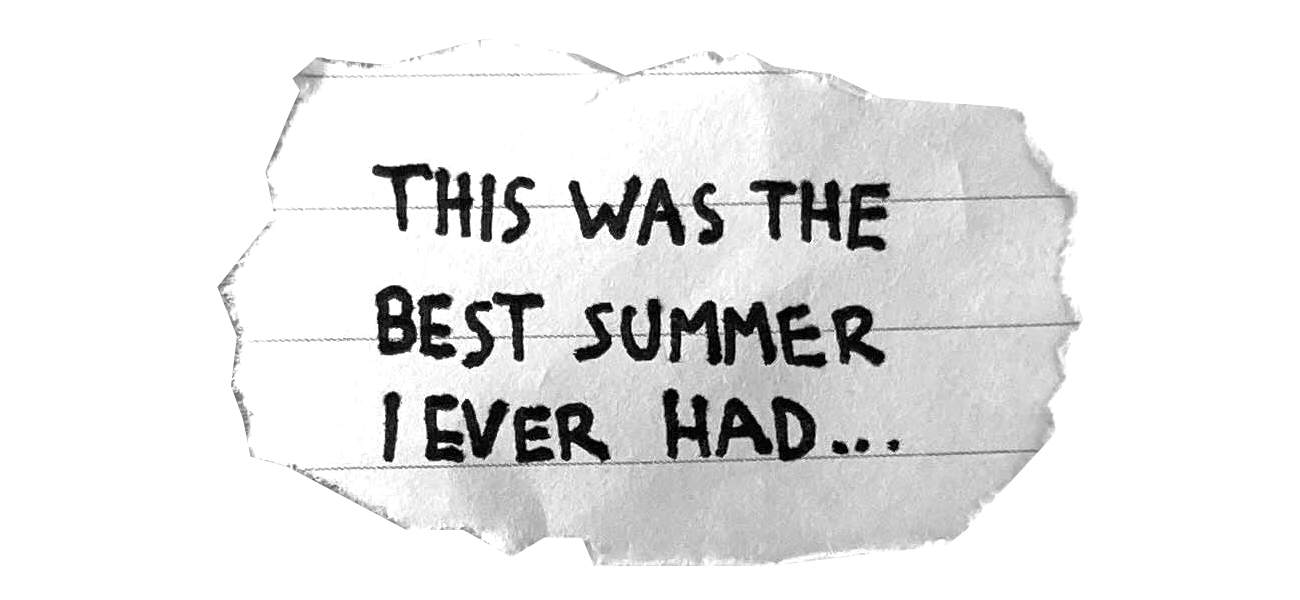 THIS WAS THE
BEST SUMMER
I EVER HAD...